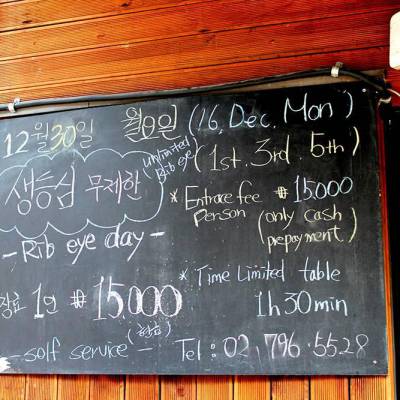 12월 30일 월요일 (16, Dec. Mon)
생등심 무제한 (unlimited Rib eye) (1st. 3rd. 5th)
* Entrace fee ₩ 15,000
person (only cash
prepayment)
- Rib eye day -
* Time Limited table
1h 30min
장료 1인 ₩15,000
(현금)
- solf service - Tel : 02. 796. 5528